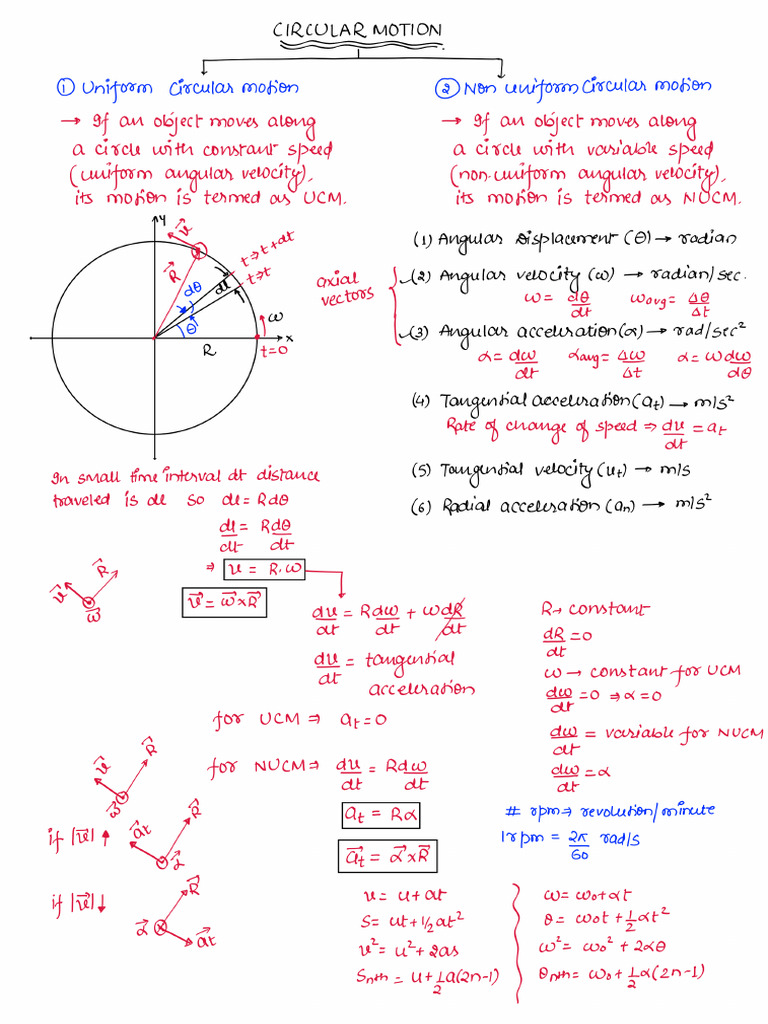 CIRCULAR MOTION
① Uniform Circular motion
→ If an object moves along
a circle with constant speed
(uniform angular velocity),
its motion is termed as UCM.
② Non uniform Circular motion
→ If an object moves along
a circle with variable speed
(non-uniform angular velocity),
its motion is termed as NUCM.
y
v⃗
R⃗
t→t+dt
t→t
dθ
dl
θ
ω
x
R
t=0
axial
vectors
(1) Angular Displacement (θ) → radian
(2) Angular velocity (ω) → radian/sec.
ω = dθ/dt ω_avg = Δθ/Δt
(3) Angular acceleration (α) → rad/sec²
α = dω/dt α_avg = Δω/Δt α = ω dω/dθ
(4) Tangential acceleration (a_t) → m/s²
Rate of change of speed ⇒ dv/dt = a_t
(5) Tangential velocity (v_t) → m/s
(6) Radial acceleration (a_n) → m/s²
In small time interval dt distance
traveled is dl so dl = Rdθ
dl/dt = R dθ/dt
⇒ v = R.ω
v⃗ = ω⃗ × R⃗
v⃗
R⃗
ω⃗
dv/dt = R dω/dt + ω dR/dt
dv/dt = tangential
acceleration
R → constant
dR/dt = 0
ω → constant for UCM
dω/dt = 0 ⇒ α = 0
dω/dt = variable for NUCM
dω/dt = α
for UCM ⇒ a_t = 0
for NUCM ⇒ dv/dt = R dω/dt
a_t = Rα
a⃗_t = α⃗ × R⃗
# rpm ⇒ revolution/minute
1 rpm = 2π/60 rad/s
v⃗
R⃗
ω⃗
if |v⃗| ↑
a⃗t
R⃗
α⃗
if |v⃗| ↓
R⃗
α⃗
a⃗t
v = u + at
S = ut + 1/2 at²
v² = u² + 2as
S_nth = u + 1/2 a(2n-1)
ω = ω₀ + αt
θ = ω₀t + 1/2 αt²
ω² = ω₀² + 2αθ
θ_nth = ω₀ + 1/2 α(2n-1)